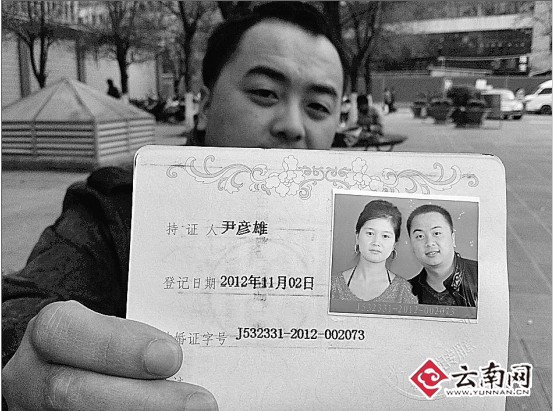 持证人 尹彦雄
登记日期 2012年11月02日
结婚证字号 J532331-2012-002073
J532331-2012-002073
云南网
WWW.YUNNAN.CN